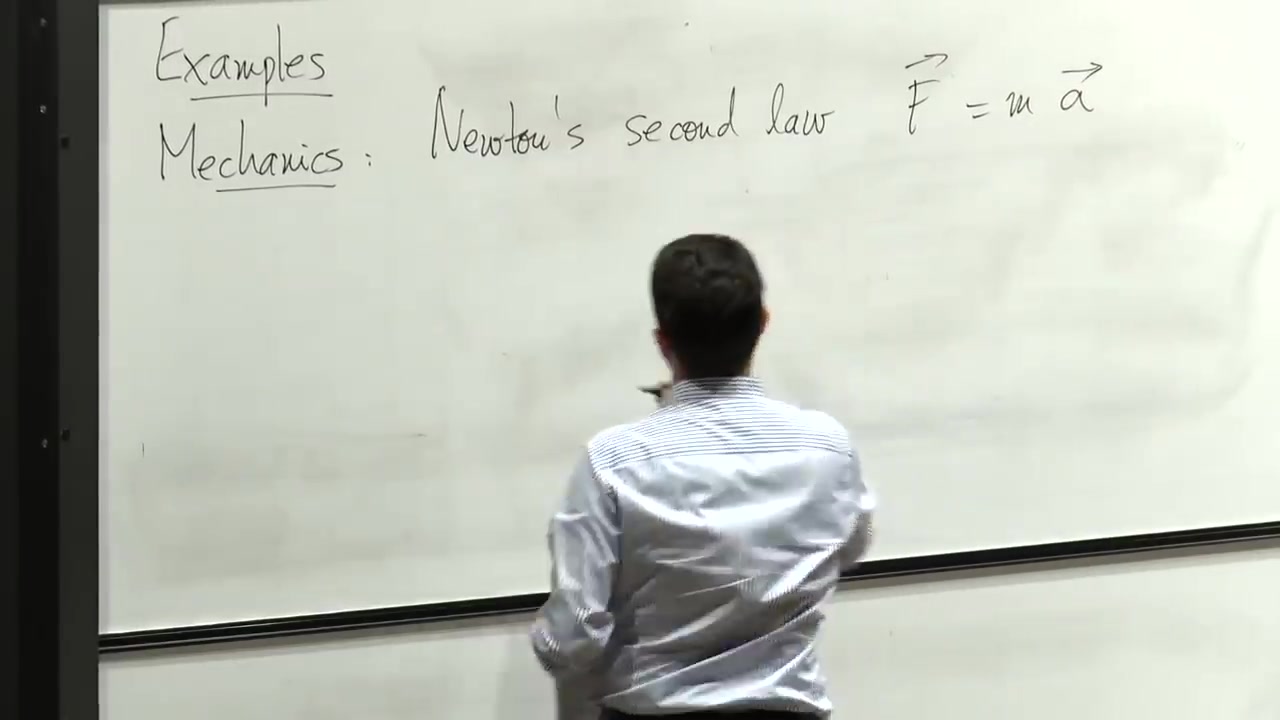 Examples
Mechanics: Newton's second law $\vec{F} = m\vec{a}$